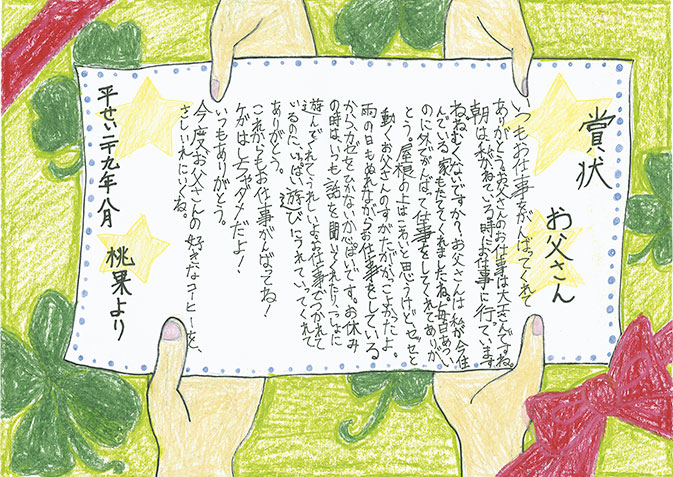 賞状
お父さん
いつもお仕事をがんばってくれて
ありがとう。お父さんのお仕事は大工さんですね。
朝は、私がねている時にお仕事に行っています。
ねむくないですか?お父さんは、私が今住
んでいる家もたててくれましたね。毎日あつい
のに外でがんばって仕事をしてくれてありが
とう。屋根の上はこわいと思うけど、せっせと
動くお父さんのすがたがかっこよかったよ。
雨の日もぬれながらお仕事をしている
から、カゼをひかないか心ぱいです。お休み
の時は、いつも話を聞いてくれたり、いっしょに
遊んでくれてうれしいよ。お仕事でつかれて
いるのに、いっぱい遊びにつれていってくれて
ありがとう。
これからもお仕事がんばってね!
ケガはしちゃダメだよ!
いつもありがとう。
今度お父さんの好きなコーヒーを、
さしいれにいくね。
平せい二十九年八月
桃果より